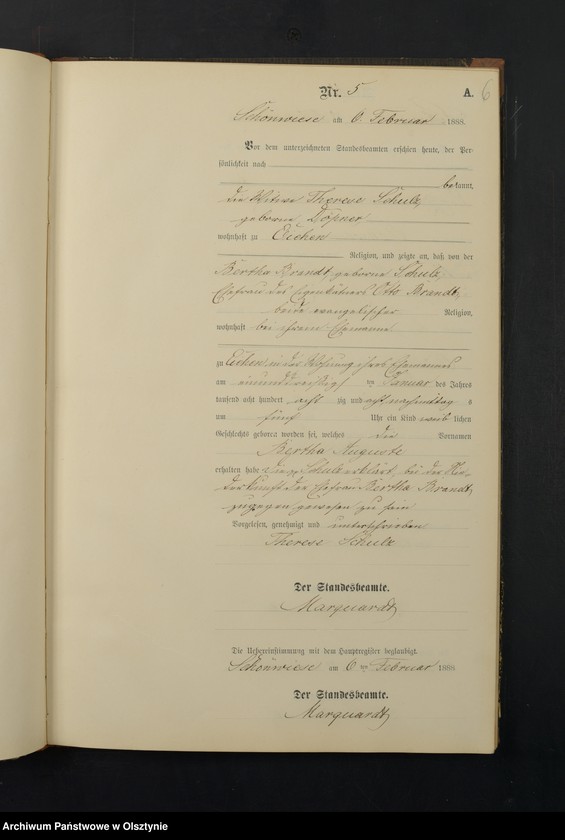 Nr. 5 A. 6
Schönwiese am 6. Februar 1888.
Vor dem unterzeichneten Standesbeamten erschien heute, der Per-
sönlichkeit nach
bekannt,
die Witwe Therese Schulz,
geborene Döpner,
wohnhaft zu Eichen
Religion, und zeigte an, daß von der
Bertha Brandt, geborene Schulz,
Ehefrau des Eigenkätners Otto Brandt,
beide evangelischer Religion,
wohnhaft bei ihrem Ehemanne
zu Eichen in der Wohnung ihres Ehemannes
am einunddreißigsten Januar des Jahres
tausend acht hundert achtzig und acht nachmittags
um fünf Uhr ein Kind weiblichen
Geschlechts geboren worden sei, welches die Vornamen
Bertha Auguste
erhalten habe. Schulz erklärt, bei der Nie-
derkunft der Ehefrau Bertha Brandt,
zugegen gewesen zu sein
Vorgelesen, genehmigt und unterschrieben
Therese Schulz
Der Standesbeamte.
Marquardt
Die Uebereinstimmung mit dem Hauptregister beglaubigt.
Schönwiese am 6ten Februar 1888
Der Standesbeamte.
Marquardt
Archiwum Państwowe w Olsztynie